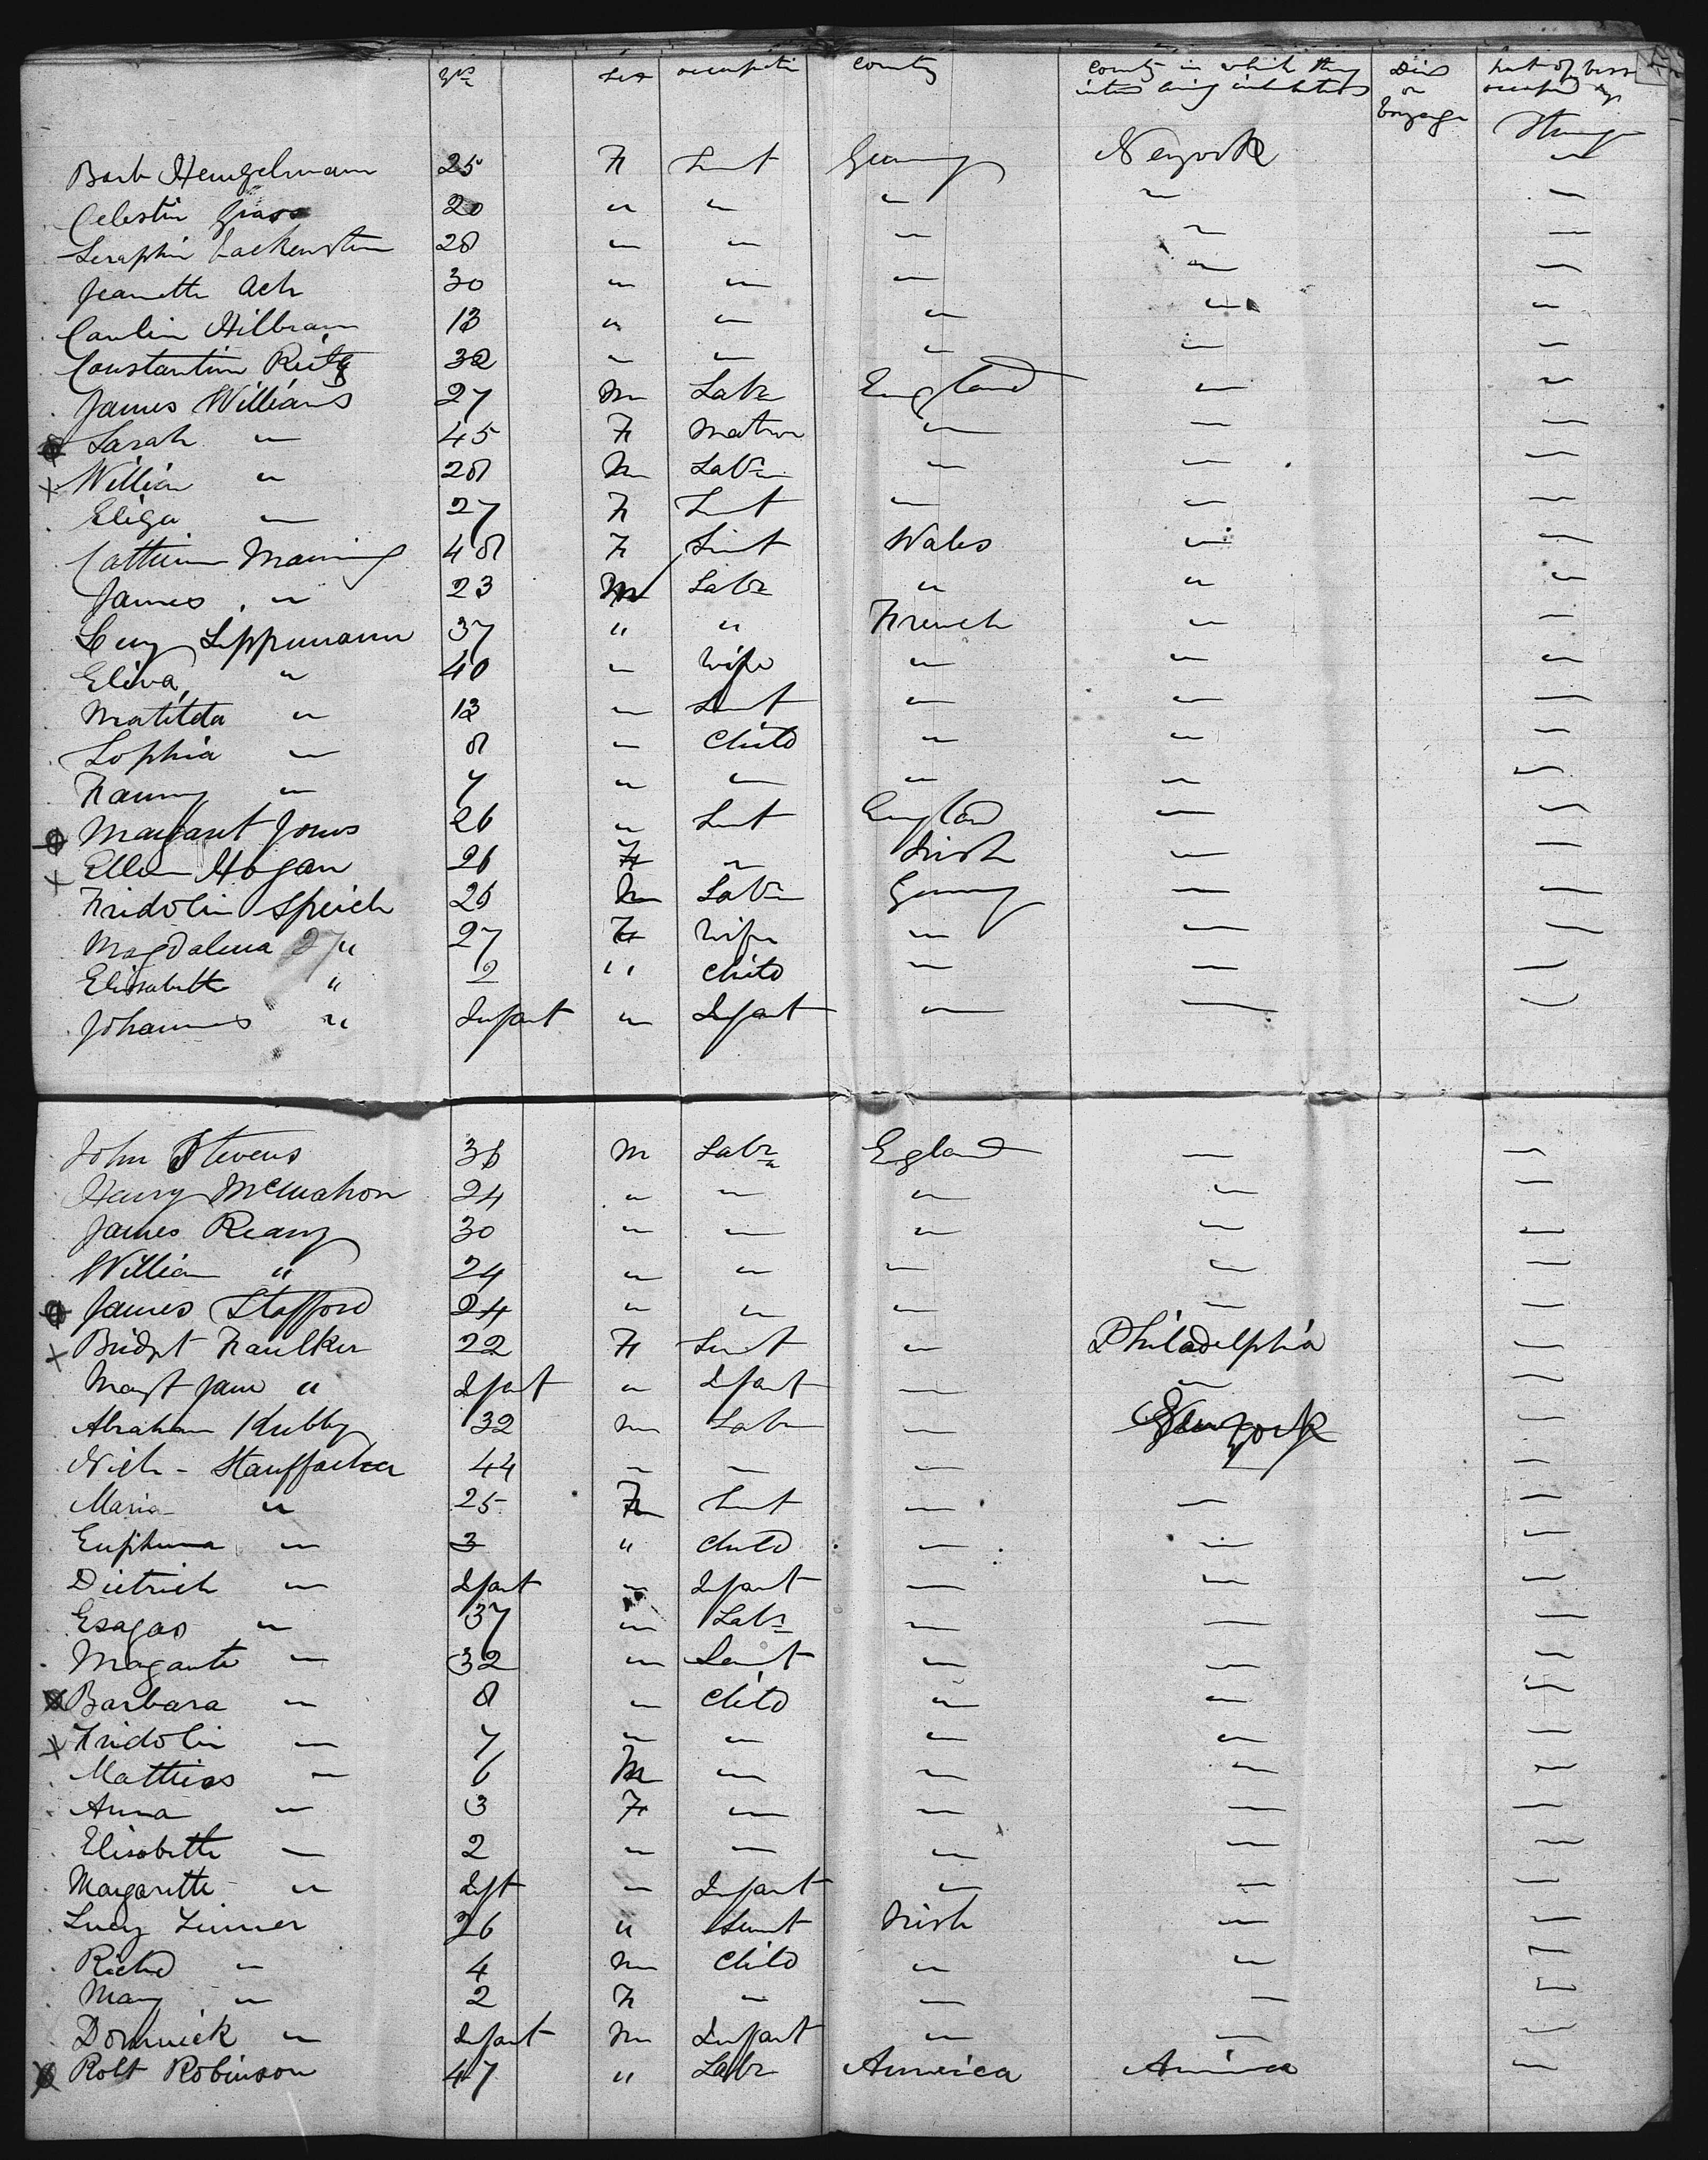 yrs Sex occupati County County in which they Died Part of vess
intend being inhabitants on occupied by
Voyage
Barb Hengelmann 25 F Sert Germany Newyork Steerage
Celestin Grass 20 " " " " "
Seraphin Lackenstein 28 " " " " "
Jeanette Ach 30 " " " " "
Caulin Hilbram 13 " " " " "
Constantin Reitz 32 " " " " "
James Williams 27 m Labr England " "
Sarah " 45 F Matron " " "
William " 28 m Labr " " "
Eliza " 27 F Sert " " "
Catherine Maning 48 F Sert Wales " "
James " 23 M Labr " " "
Lippmann 37 " " French " "
Eliva " 40 " Wife " " "
Matilda " 12 " Sert " " "
Sophia " 8 " Child " " "
Fanny " 7 " " " " "
Margaret Jones 26 " Sert England " "
Ellen Hogan 26 F " Irish " "
Fridolin Speich 26 m Labr Germany " "
Magdalena 27 " 27 F Wife " " "
Elisabeth " 2 " Child " " "
Johannes " Infant " Infant " " "
John Stevens 36 m Labr England " "
Henry McMahon 24 " " " " "
James Reany 30 " " " " "
William " 24 " " " " "
James Stafford 24 " " " " "
Bridget Faulker 22 F Sert " Philadelphia "
Margt Jane " Infant " Infant " " "
Abraham Kubly 32 m Labr " Newyork "
Nich - Stauffacher 44 " " " " "
Maria " 25 F Sert " " "
Euphema " 3 " Child " " "
Dietrich " Infant " Infant " " "
Esagas " 37 " Labr " " "
Magante " 32 " Sert " " "
Barbara " 8 " Child " " "
Fridolin " 7 " " " " "
Matthias " 6 M " " " "
Anna " 3 F " " " "
Elisabeth " 2 " " " " "
Margarette " Inft " Infant " " "
Lucy Zinner 26 " Sert Irish " "
Richd " 4 m Child " " "
Mary " 2 F " " " "
Dominick " Infant m Infant " " "
Robt Robinson 47 " Labr America America "